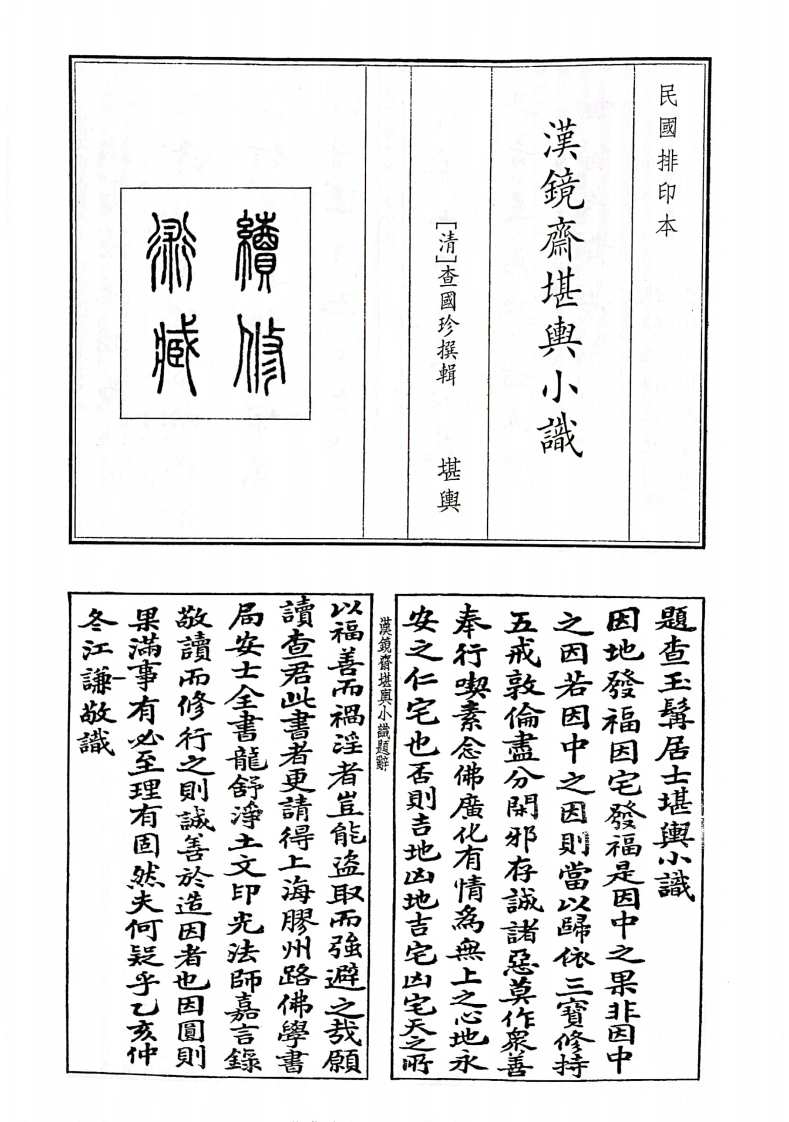 民國排印本
漢鏡齋堪輿小識
［清］查國珍撰輯　堪輿
續修
術藏
題查玉髯居士堪輿小識
因地發福因宅發福是因中之果非因中
之因若因中之因則當以歸依三寶修持
五戒敦倫盡分閑邪存誠諸惡莫作衆善
奉行喫素念佛廣化有情為無上之心地永
安之仁宅也否則吉地凶地吉宅凶宅天之所
漢鏡齋堪輿小識題辭
以福善而禍淫者豈能盗取而強避之哉願
讀查君此書者更請得上海膠州路佛學書
局安士全書龍舒淨土文印光法師嘉言錄
敬讀而修行之則誠善於造因者也因圓則
果滿事有必至理有固然夫何疑乎乙亥仲
冬江謙敬識
一